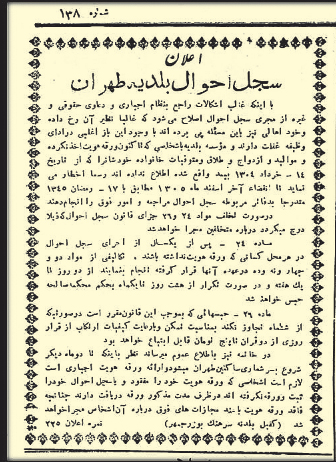 شماره ۱۳۸
اعلان
سجل احوال بلدیه طهران
با اینکه غالب اشکالات راجع بنظام اجباری و دعاوی حقوقی و
غیره از مجری سجل احوال اصلاح می شود که غالبا نظیر آن رخ داده
وخود اهالی نیز باین مسئله پی برده اند با وجود این باز اغلبی درادای
وظیفه غفلت دارند و مؤسسه بلدیه باشخاصی که تاکنون ورقه هویت اخذ نکرده
و موالید و ازدواج و طلاق ومتوفیات خانواده خودشانرا که از تاریخ
۱۴ - خرداد ۱۳۰۴ ببعد واقع شده اطلاع نداده اند رسما اخطار می
نماید تا انقضاء آخر اسفند ماه ۱۳۰۵ مطابق با ۱۷ - رمضان ۱۳۴۵
متدرجا بدفاتر مربوطه سجل احوال مراجعه و امور فوق را انجام دهند
درصورت تخلف مواد ۲۴ و ۲۹ جزای قانون سجل احوال که ذیلا
درج میگردد درباره متخلفین مجرا خواهد شد
ماده ۲۴ - پس از یکسال از اجرای سجل احوال
در هر محل کسانی که ورقه هویت نداشته باشند . تکالیفی از مواد دو و
چهار ونه وده درعهده آنها قرار گرفته انجام ننمایند از دو روز تا
یک هفته و در صورت تکرار از هشت روز تا یکماه بحکم محکمه صالحه
حبس خواهند شد
ماده ۲۹ - حبسهائی که بموجب این قانون مقرر است درصورتیکه
از ششماه تجاوز نکند بمناسبت تمکن وبارعایت کیفیات ارتکاب از قرار
روزی از دو قران تا پنج تومان قابل ابتیاع خواهد بود
در خاتمه نیز باطلاع عموم میرساند نظر باینکه تا دوماه دیگر
شروع بسرشماری ساکنین طهران میشود و ارائه ورقه هویت اجباری است
لازم است اشخاصی که ورقه هویت خود را مفقود و یا سجل احوال خود را
ثبت و ورقه نگرفته اند در ظرف مدت مذکور ورقه دریافت دارند چنانچه
فاقد ورقه هویت باشند مجازات های فوق درباره آن اشخاص مجرا خواهد
شد (کفیل بلدیه سرهنک بوذرجمهر) نمره اعلان ۲۲۵